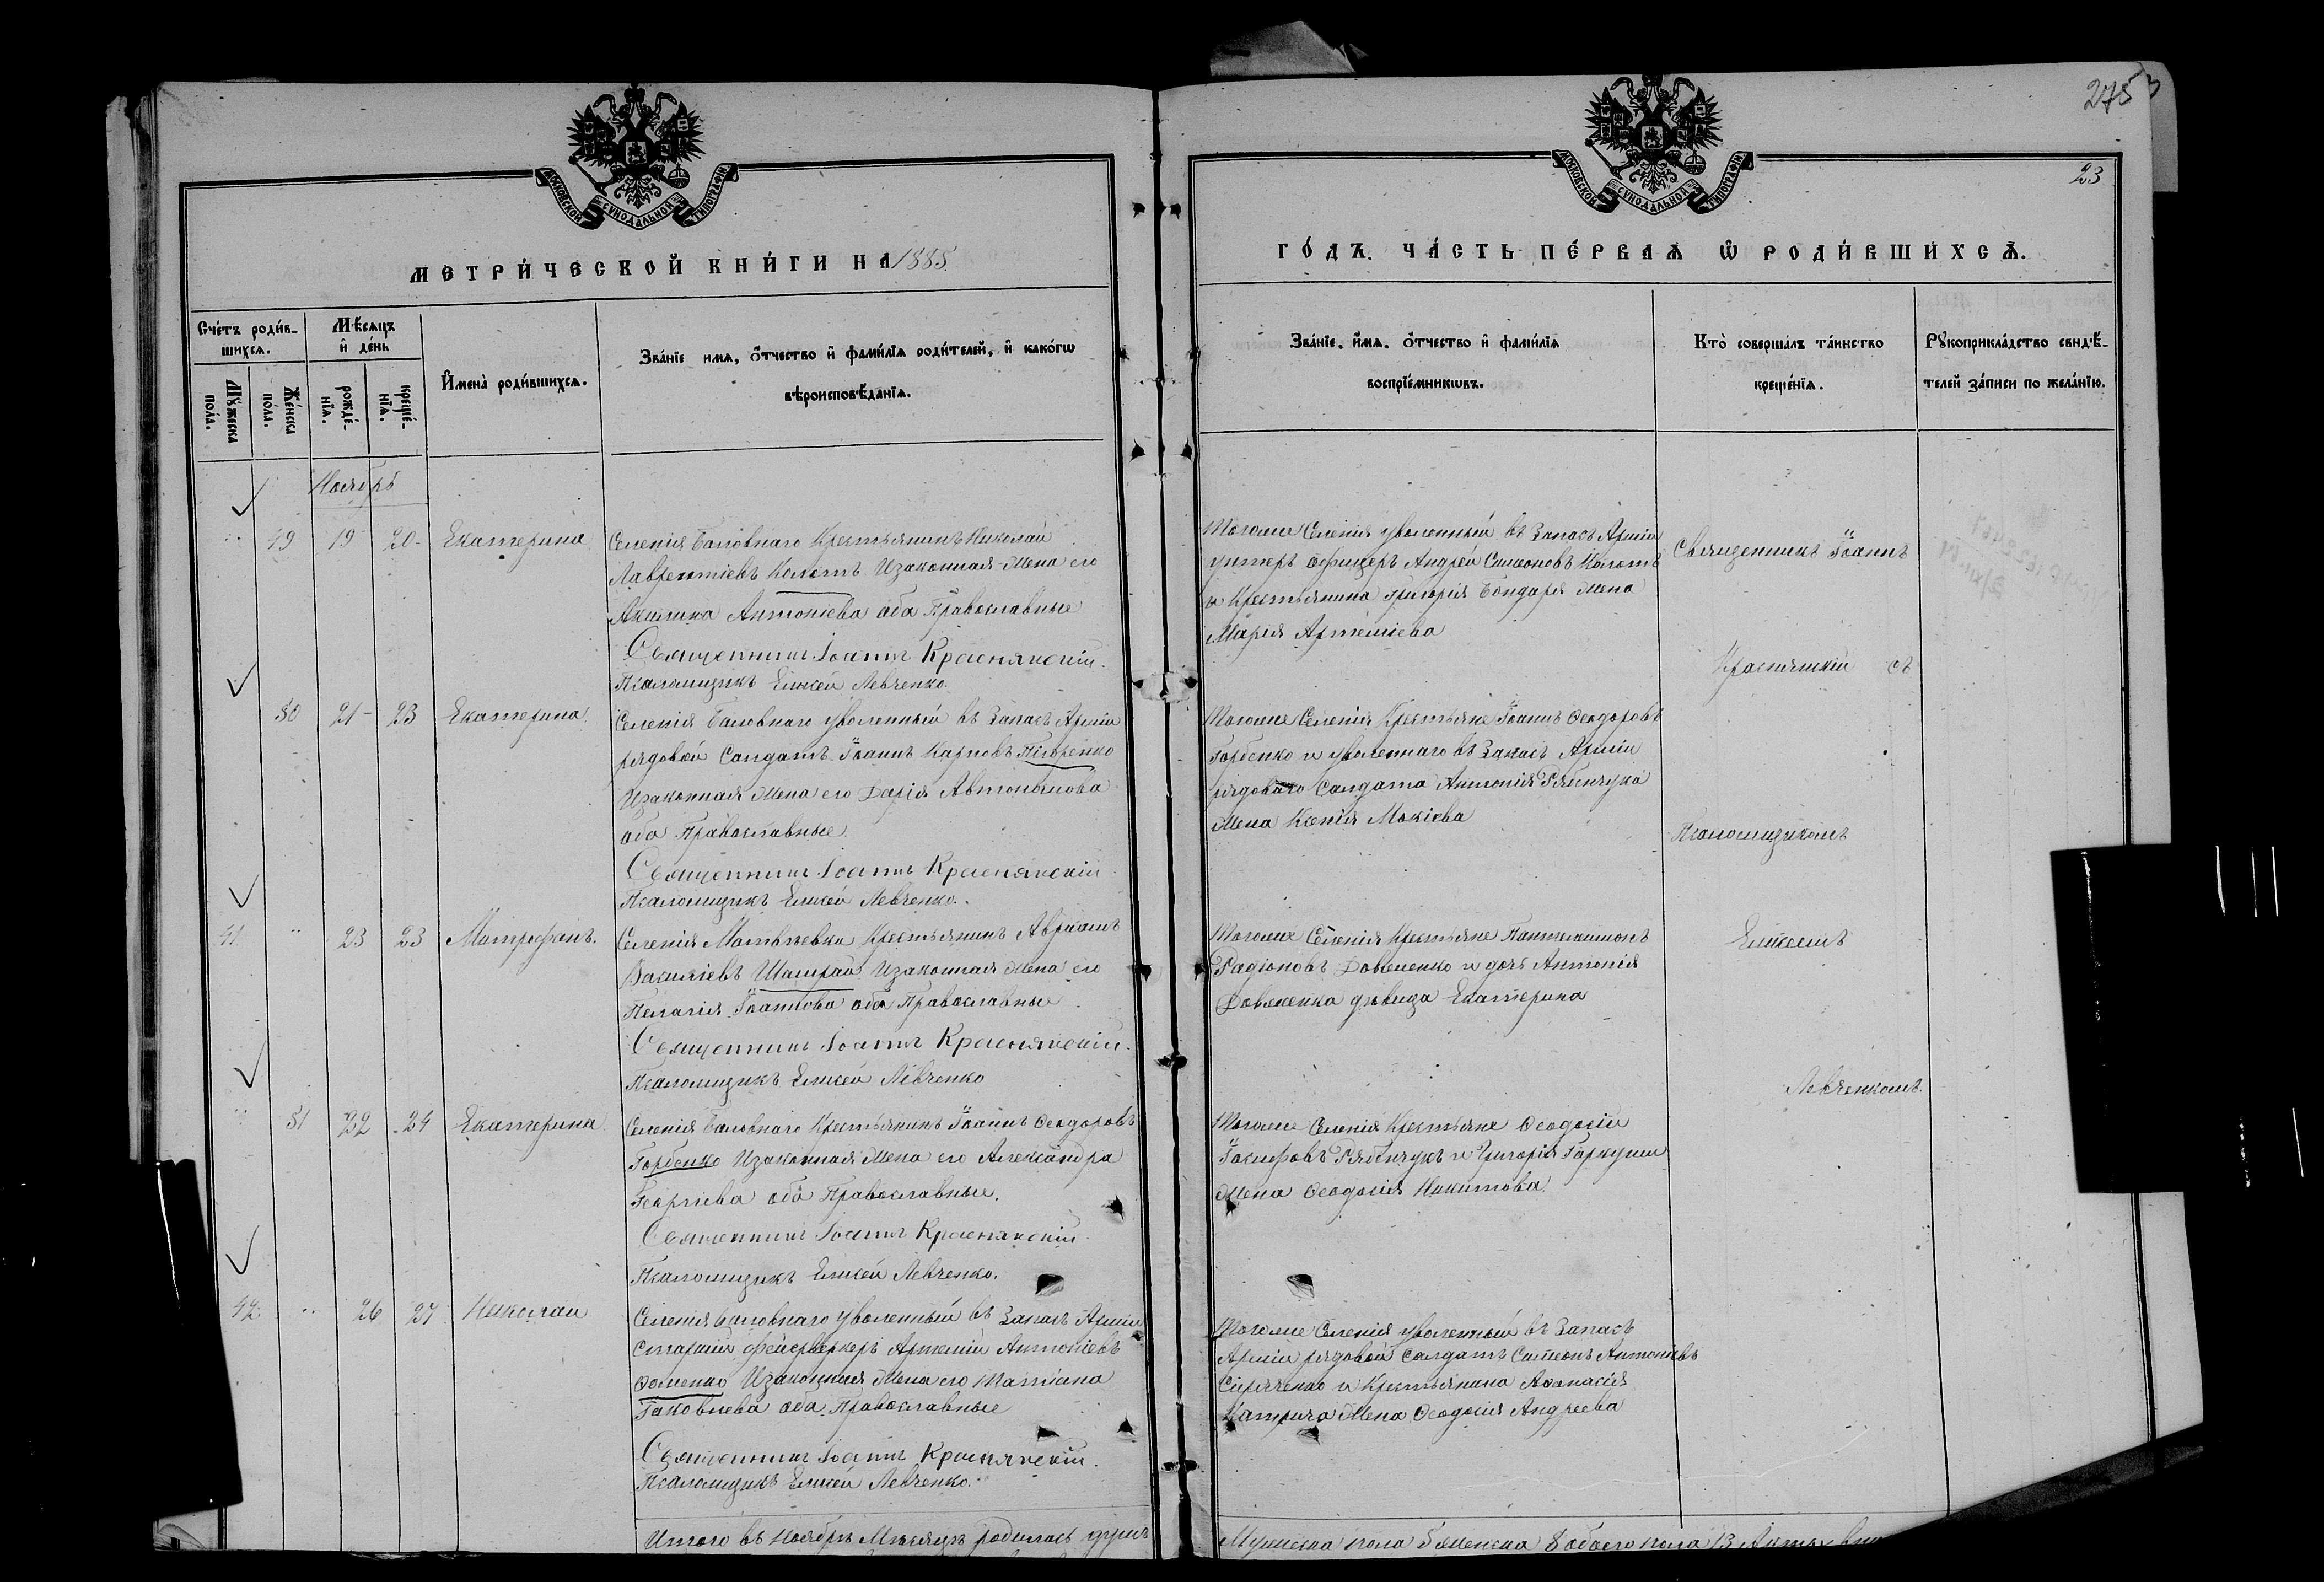 275
23
МОСКОВСКОЙ СѴНОДАЛЬНОЙ ТИПОГРАФІИ
МОСКОВСКОЙ СѴНОДАЛЬНОЙ ТИПОГРАФІИ
МЕТРИ́ЧЕСКОЙ КНИ́ГИ НА 1885
ГО́ДЪ. ЧА́СТЬ ПЕ́РВАѦ Ѡ҆ РОДИ́ВШИХСѦ.
Сче́тъ роди́в-
шихсѧ.
Мѣ́сѧцъ
и҆ де́нь
Мꙋ́жеска
по́ла.
Же́нска
по́ла.
рожде́-
нїѧ.
креще́-
нїѧ.
И҆мена̀ роди́вшихсѧ.
Зва́нїе имѧ, ѻ҆́тчество и҆ фами́лїѧ роди́телей, и҆ како́гѡ
вѣроисповѣ́данїѧ.
Зва́нїе, и҆́мѧ, ѻ҆́тчество и҆ фами́лїѧ
воспрїе́мникѡвъ.
Кто̀ соверша́лъ та́инство
креще́нїѧ.
Рꙋкоприкла́дство свидѣ́-
телей за́писи по жела́нїю.
Ноябрь
49 19 20 Екатерина
Селенія Баловнаго Крестьянинъ Николай
Лаврентіевъ Коломъ Изаконная Жена его
Антоніева оба Православные
Священникъ Іоаннъ Краснянскій.
Псаломщикъ Елисей Левченко.
Тогоже Селенія уволенный въ Запасъ Арміи
унтеръ офицеръ Андрей Симеоновъ Коломъ
и Крестьянина Григорія Бондаря Жена
Марія Артеміева
Священникъ Іоаннъ
Краснянскій съ
50 21 23 Екатерина
Селенія Баловнаго уволенный въ Запасъ Арміи
рядовой Солдатъ Іоаннъ Карповъ
Изаконная Жена его Дарія Автономова
оба Православные
Священникъ Іоаннъ Краснянскій
Псаломщикъ Елисей Левченко.
Тогоже Селенія Крестьяне Іоаннъ Ѳеодоровъ
Горбенко и уволеннаго въ Запасъ Арміи
рядоваго Солдата Антонія Рябчука
Жена Ксенія Мокіева
Псаломщикомъ
41 23 23 Митрофанъ.
Селенія Матвѣевки Крестьянинъ Авраамъ
Василіевъ Шамрай Изаконная Жена его
Пелагія Іоаннова оба Православные
Священникъ Іоаннъ Краснянскій.
Псаломщикъ Елисей Левченко
Тогоже Селенія Крестьяне Пантелеимонъ
Радіоновъ Довженко и дочь Антонія
Довженка дѣвица Екатерина
Елисеемъ
Левченкомъ.
51 22 24 Екатерина
Селенія Баловнаго Крестьянинъ Іоаннъ Ѳеодоровъ
Горбенко Изаконная Жена его Александра
Георгіева оба Православные.
Священникъ Іоаннъ Краснянскій
Псаломщикъ Елисей Левченко.
Тогоже Селенія Крестьяне Ѳеодосій
Іосифовъ Рябчукъ и Григорія Гаркуши
Жена Ѳеодосія Никитова
42 26 27 Николай
Селенія Баловнаго уволенный въ Запасъ Арміи
Старшій фейерверкеръ Артемій Антоніевъ
Ѳоменко Изаконная Жена его Татіана
Іаковлева оба Православные
Священникъ Іоаннъ Краснянскій.
Псаломщикъ Елисей Левченко.
Тогоже Селенія уволенный въ Запасъ
Арміи рядовой Солдатъ Симеонъ Антоніевъ
и Крестьянина Аѳанасія
Жена Ѳеодосія Андреева
Итого въ Ноябрѣ Мѣсяцѣ родилось душъ
Мужеска пола 5 Женска 8 обоего пола 13